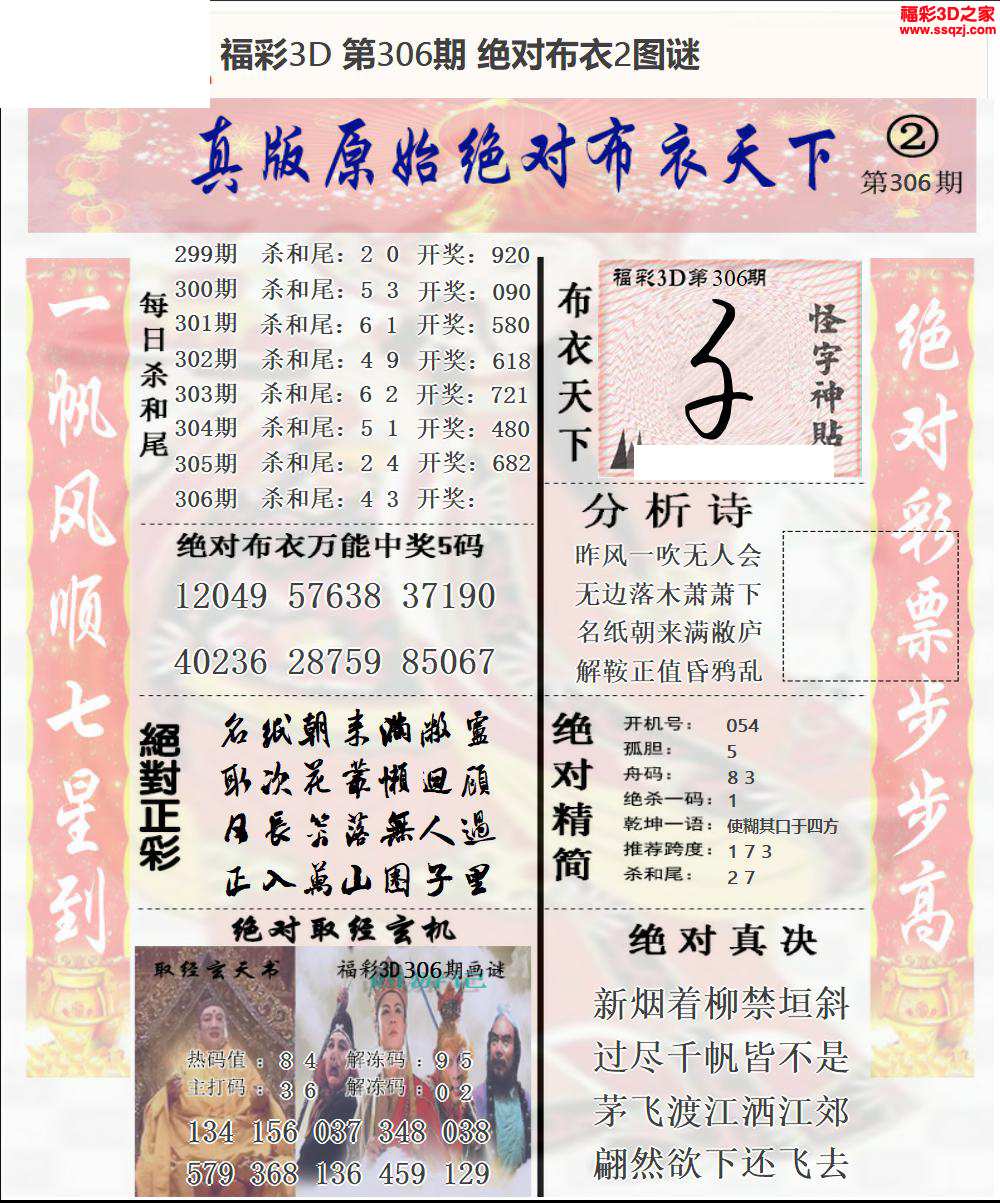 福彩3D之家
www.ssqzj.com
福彩3D 第306期 绝对布衣2图谜
真版原始绝对布衣天下
②
第306期
一帆风顺七星到
每日杀和尾
299期 杀和尾：2 0 开奖：920
300期 杀和尾：5 3 开奖：090
301期 杀和尾：6 1 开奖：580
302期 杀和尾：4 9 开奖：618
303期 杀和尾：6 2 开奖：721
304期 杀和尾：5 1 开奖：480
305期 杀和尾：2 4 开奖：682
306期 杀和尾：4 3 开奖：
绝对布衣万能中奖5码
12049 57638 37190
40236 28759 85067
絕對正彩
名纸朝来满敝廬
取次花叢懶迴顧
月長等落無人過
正入萬山圈子里
绝对取经玄机
取经玄天书
福彩3D306期画谜
热码值：8 4 解冻码：9 5
主打码：3 6 解冻码：0 2
134 156 037 348 038
579 368 136 459 129
布衣天下
福彩3D第306期
怪字神貼
分析诗
昨风一吹无人会
无边落木萧萧下
名纸朝来满敝庐
解鞍正值昏鸦乱
绝对精简
开机号：054
孤胆：5
舟码：8 3
绝杀一码：1
乾坤一语：使糊其口于四方
推荐跨度：1 7 3
杀和尾：2 7
绝对真决
新烟着柳禁垣斜
过尽千帆皆不是
茅飞渡江洒江郊
翩然欲下还飞去
绝对彩票步步高